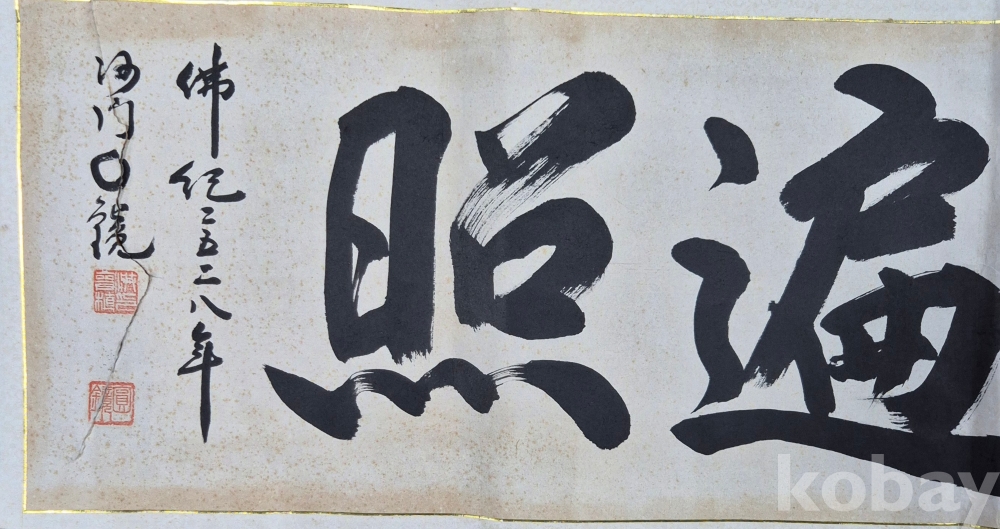 遍照
佛紀二五二八年
沙門○鏡
圓鏡
kobay